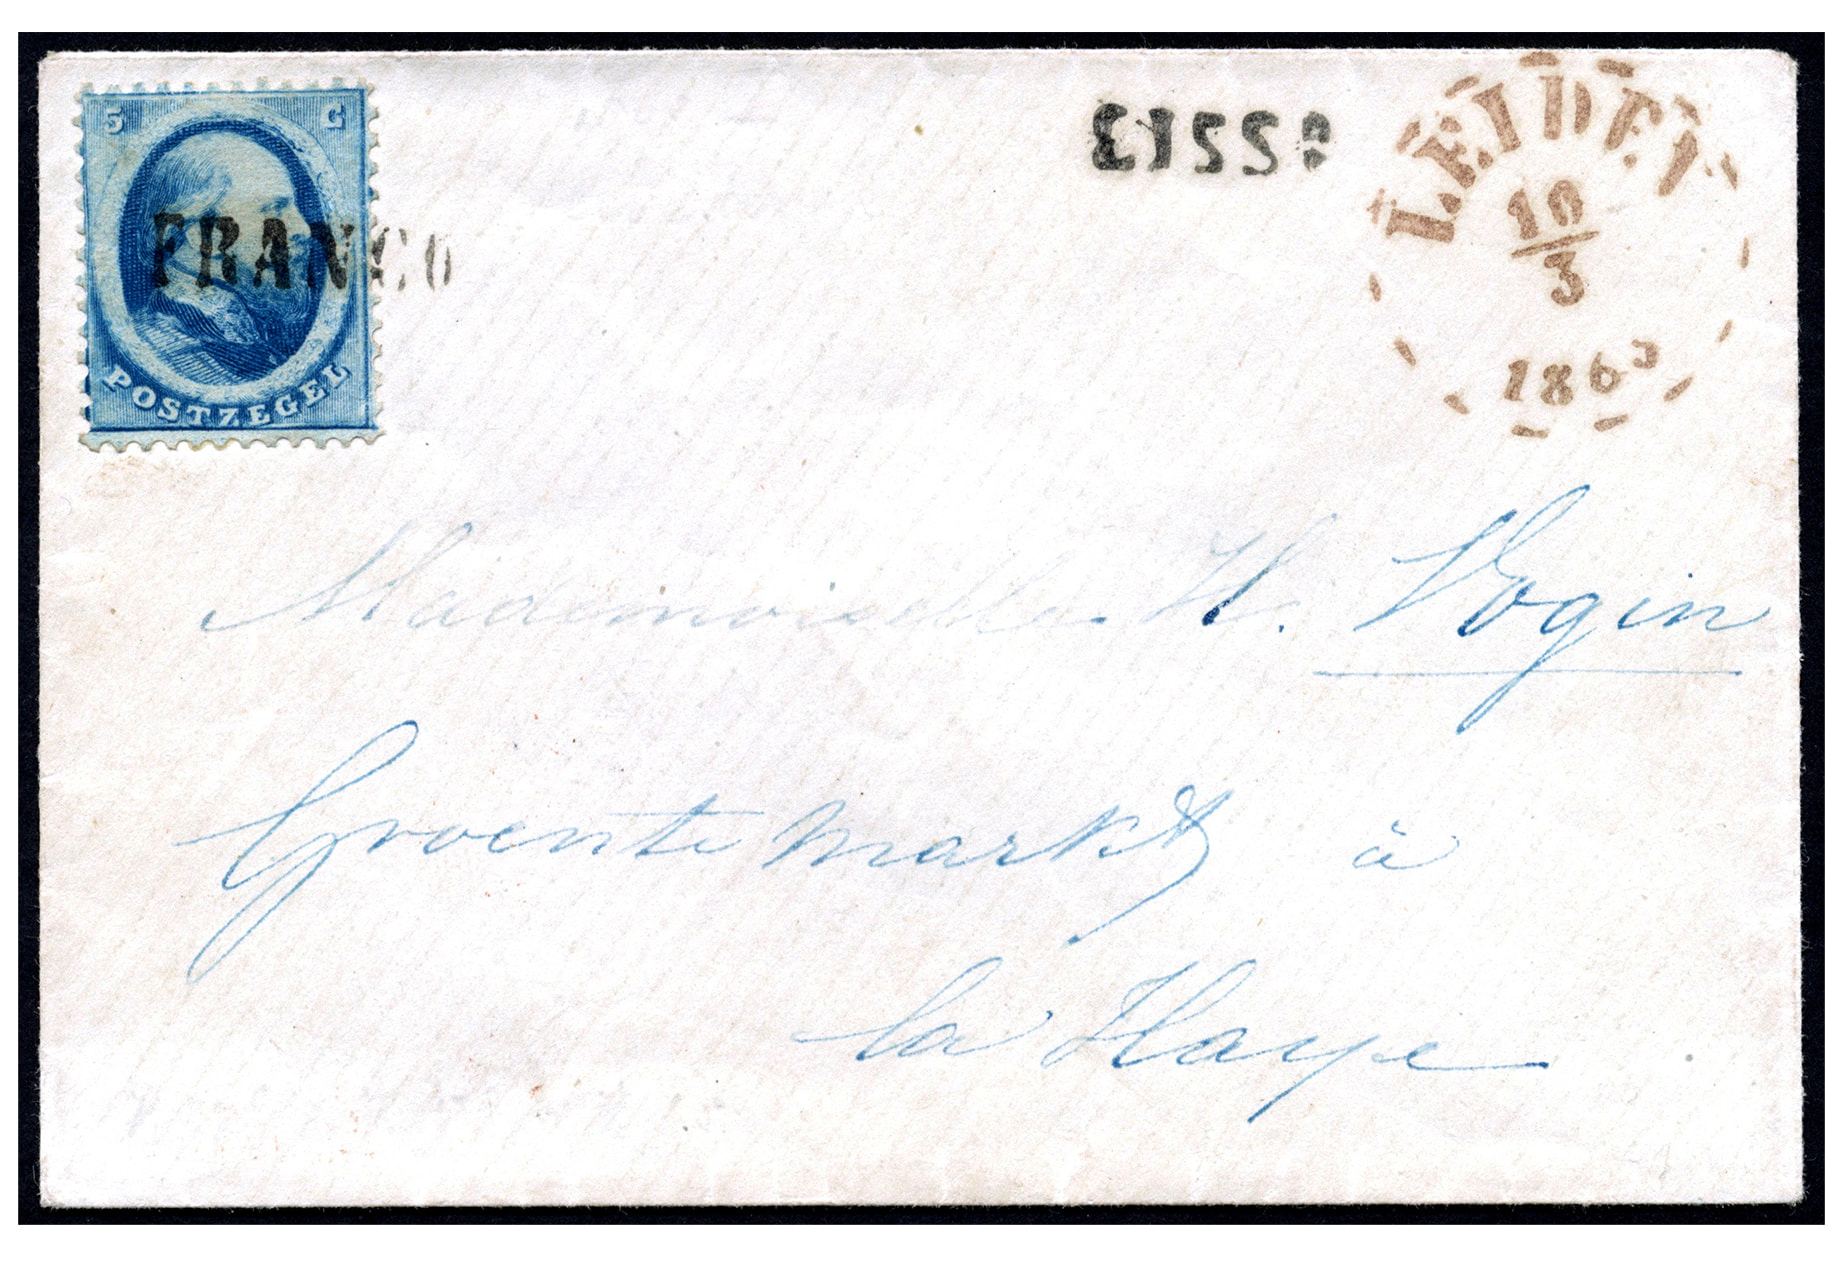 5 C
FRANCO
POSTZEGEL
LEIDEN
10
3
1865
Mademoiselle H. Vogin
Groente markt à
la Haye